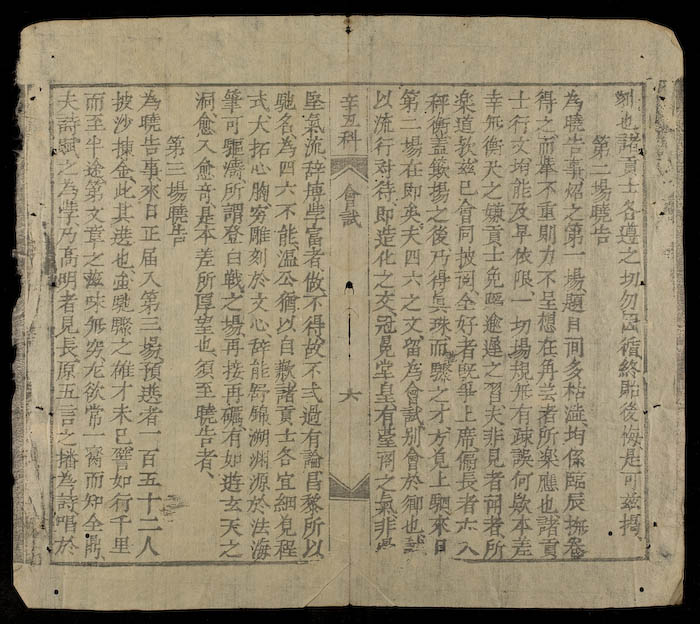 則也諸貢士各遵之切勿因循終貽後悔是可茲揭
第二場曉告
為曉告事炤之第一場題目間多枯澁均係臨辰撫卷
得之而筆不重則力不呈想在再芸者所楽應也諸貢
士行文均能及早依限一切場規並有疎誤何歉本差
幸無衡尺之嫌貢士免逾遲之習夫非見者詞者所
楽道欤茲已會同披閱全好者旣爭上席偏長者亦入
秤衡蓋簸揚之後乃得真珠而驟之才方見上駟來日
第二場在即矣夫四六之文留為會試別會於卿也
以流行対待即造化之文冠冕堂皇有臺閣之氣非
辛丑科
會試
六
堅氣流辞博學富者做不得故不式過有論昌黎所以
馳名為四六不能温公猶以自歉諸貢士各宜細見程
式大拓心胸穷雕刻於文心辞能濯錦溯淵源於法海
筆可驅濤所謂登白戰之場再接再礪有如遊玄天之
洞愈入愈竒是本差所厚望也須至曉告者
第三場曉告
為曉告事來日正届入第三場預选者一百五十二人
披沙揀金此其选也虽馳驟之雄才未已譬如行千里
而至半途第文章之滋味無穷尤欲常一臠而知全鼎
夫詩賦之為學乃高明者見長原五言之播為詩唱於